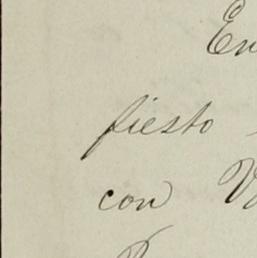 En
fiesto
con V